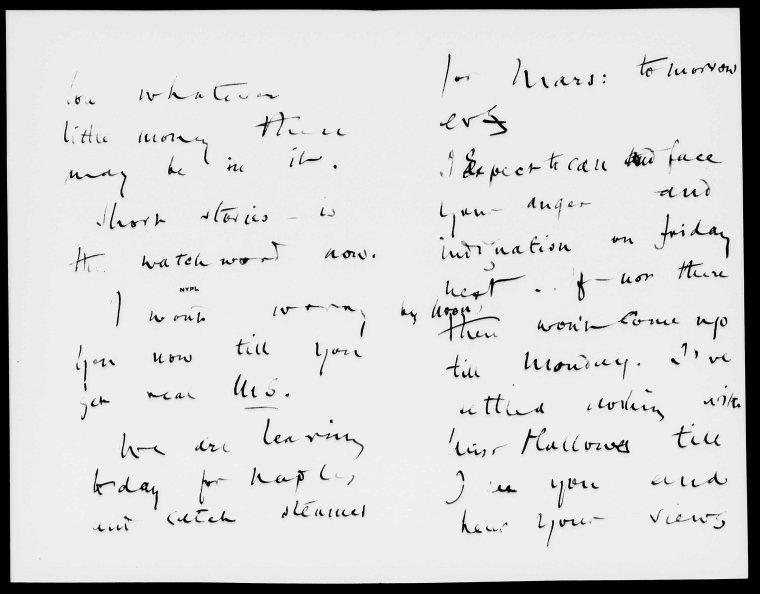 you whatever
little money there
may be in it.
Short stories - is
the watchword now.
NYPL
I won't worry
you now till you
get near MS.
We are leaving
today for Naples
and catch steamer
for Mars: tomorrow
evg
I Expect to can face
your anger and
indignation on friday
next .. if not there
by noon,
then won't Come up
till Monday. I've
settled nothing with
Hallows till
I see you and
hear your views